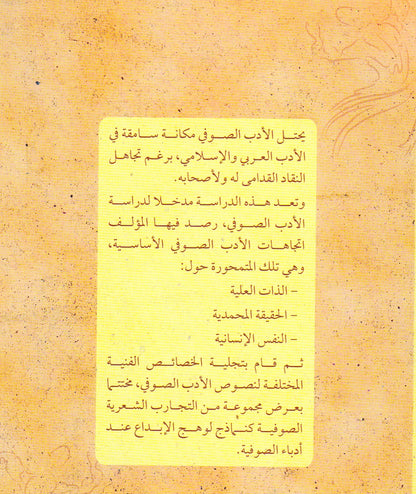 يحتل الأدب الصوفي مكانة سامقة في
الأدب العربي والإسلامي، برغم تجاهل
النقاد القدامى له ولأصحابه.
وتعد هذه الدراسة مدخلا لدراسة
الأدب الصوفي، رصد فيها المؤلف
اتجاهات الأدب الصوفي الأساسية،
وهي تلك المتمحورة حول:
– الذات العلية
– الحقيقة المحمدية
– النفس الإنسانية
ثم قام بتجلية الخصائص الفنية
المختلفة لنصوص الأدب الصوفي، مختتما
بعرض مجموعة من التجارب الشعرية
الصوفية كنماذج لوهج الإبداع عند
أدباء الصوفية.